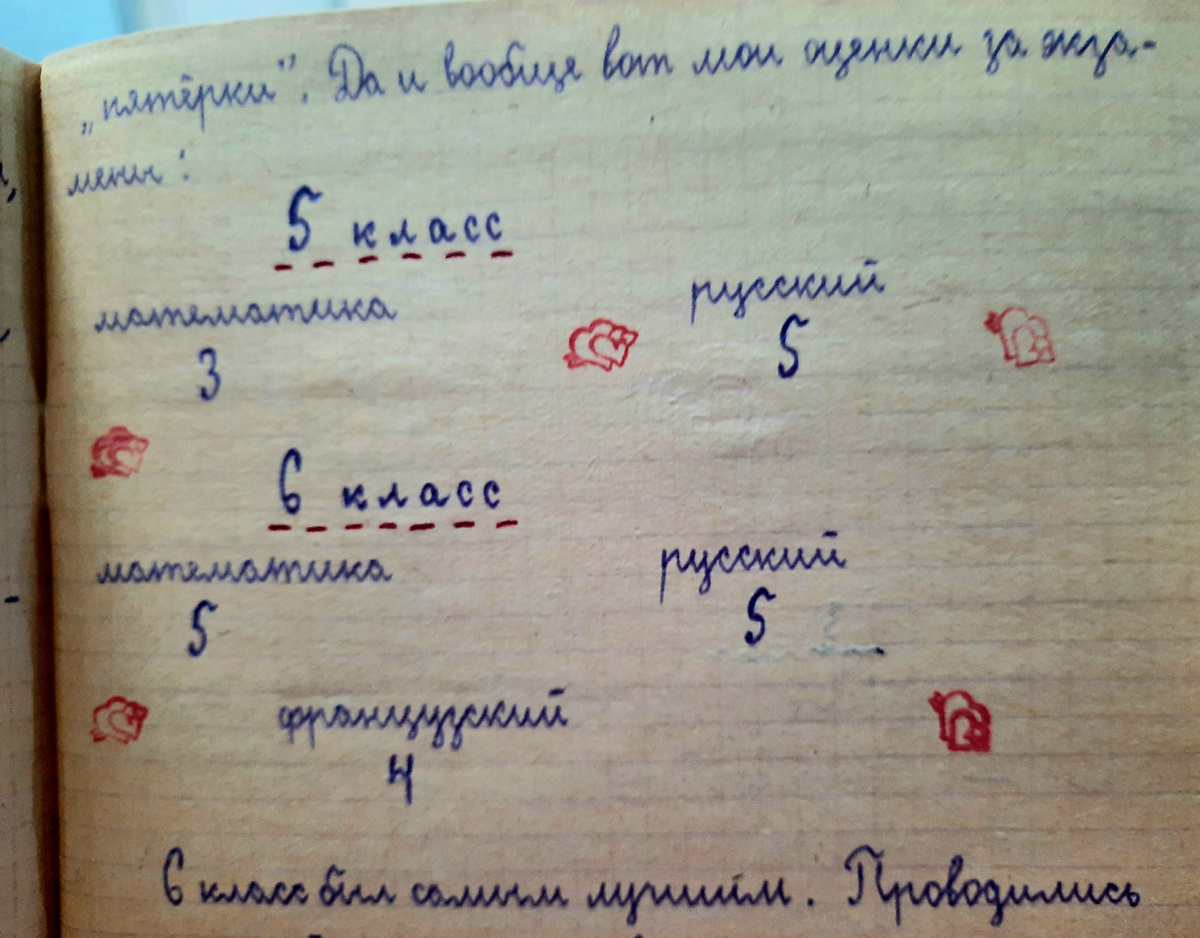 „пятёрки". Да и вообще вот мои оценки за экза-
мены:
5 класс
математика русский
3 5
6 класс
математика русский
5 5
французский
4
6 класс был самым лучшим. Проводились